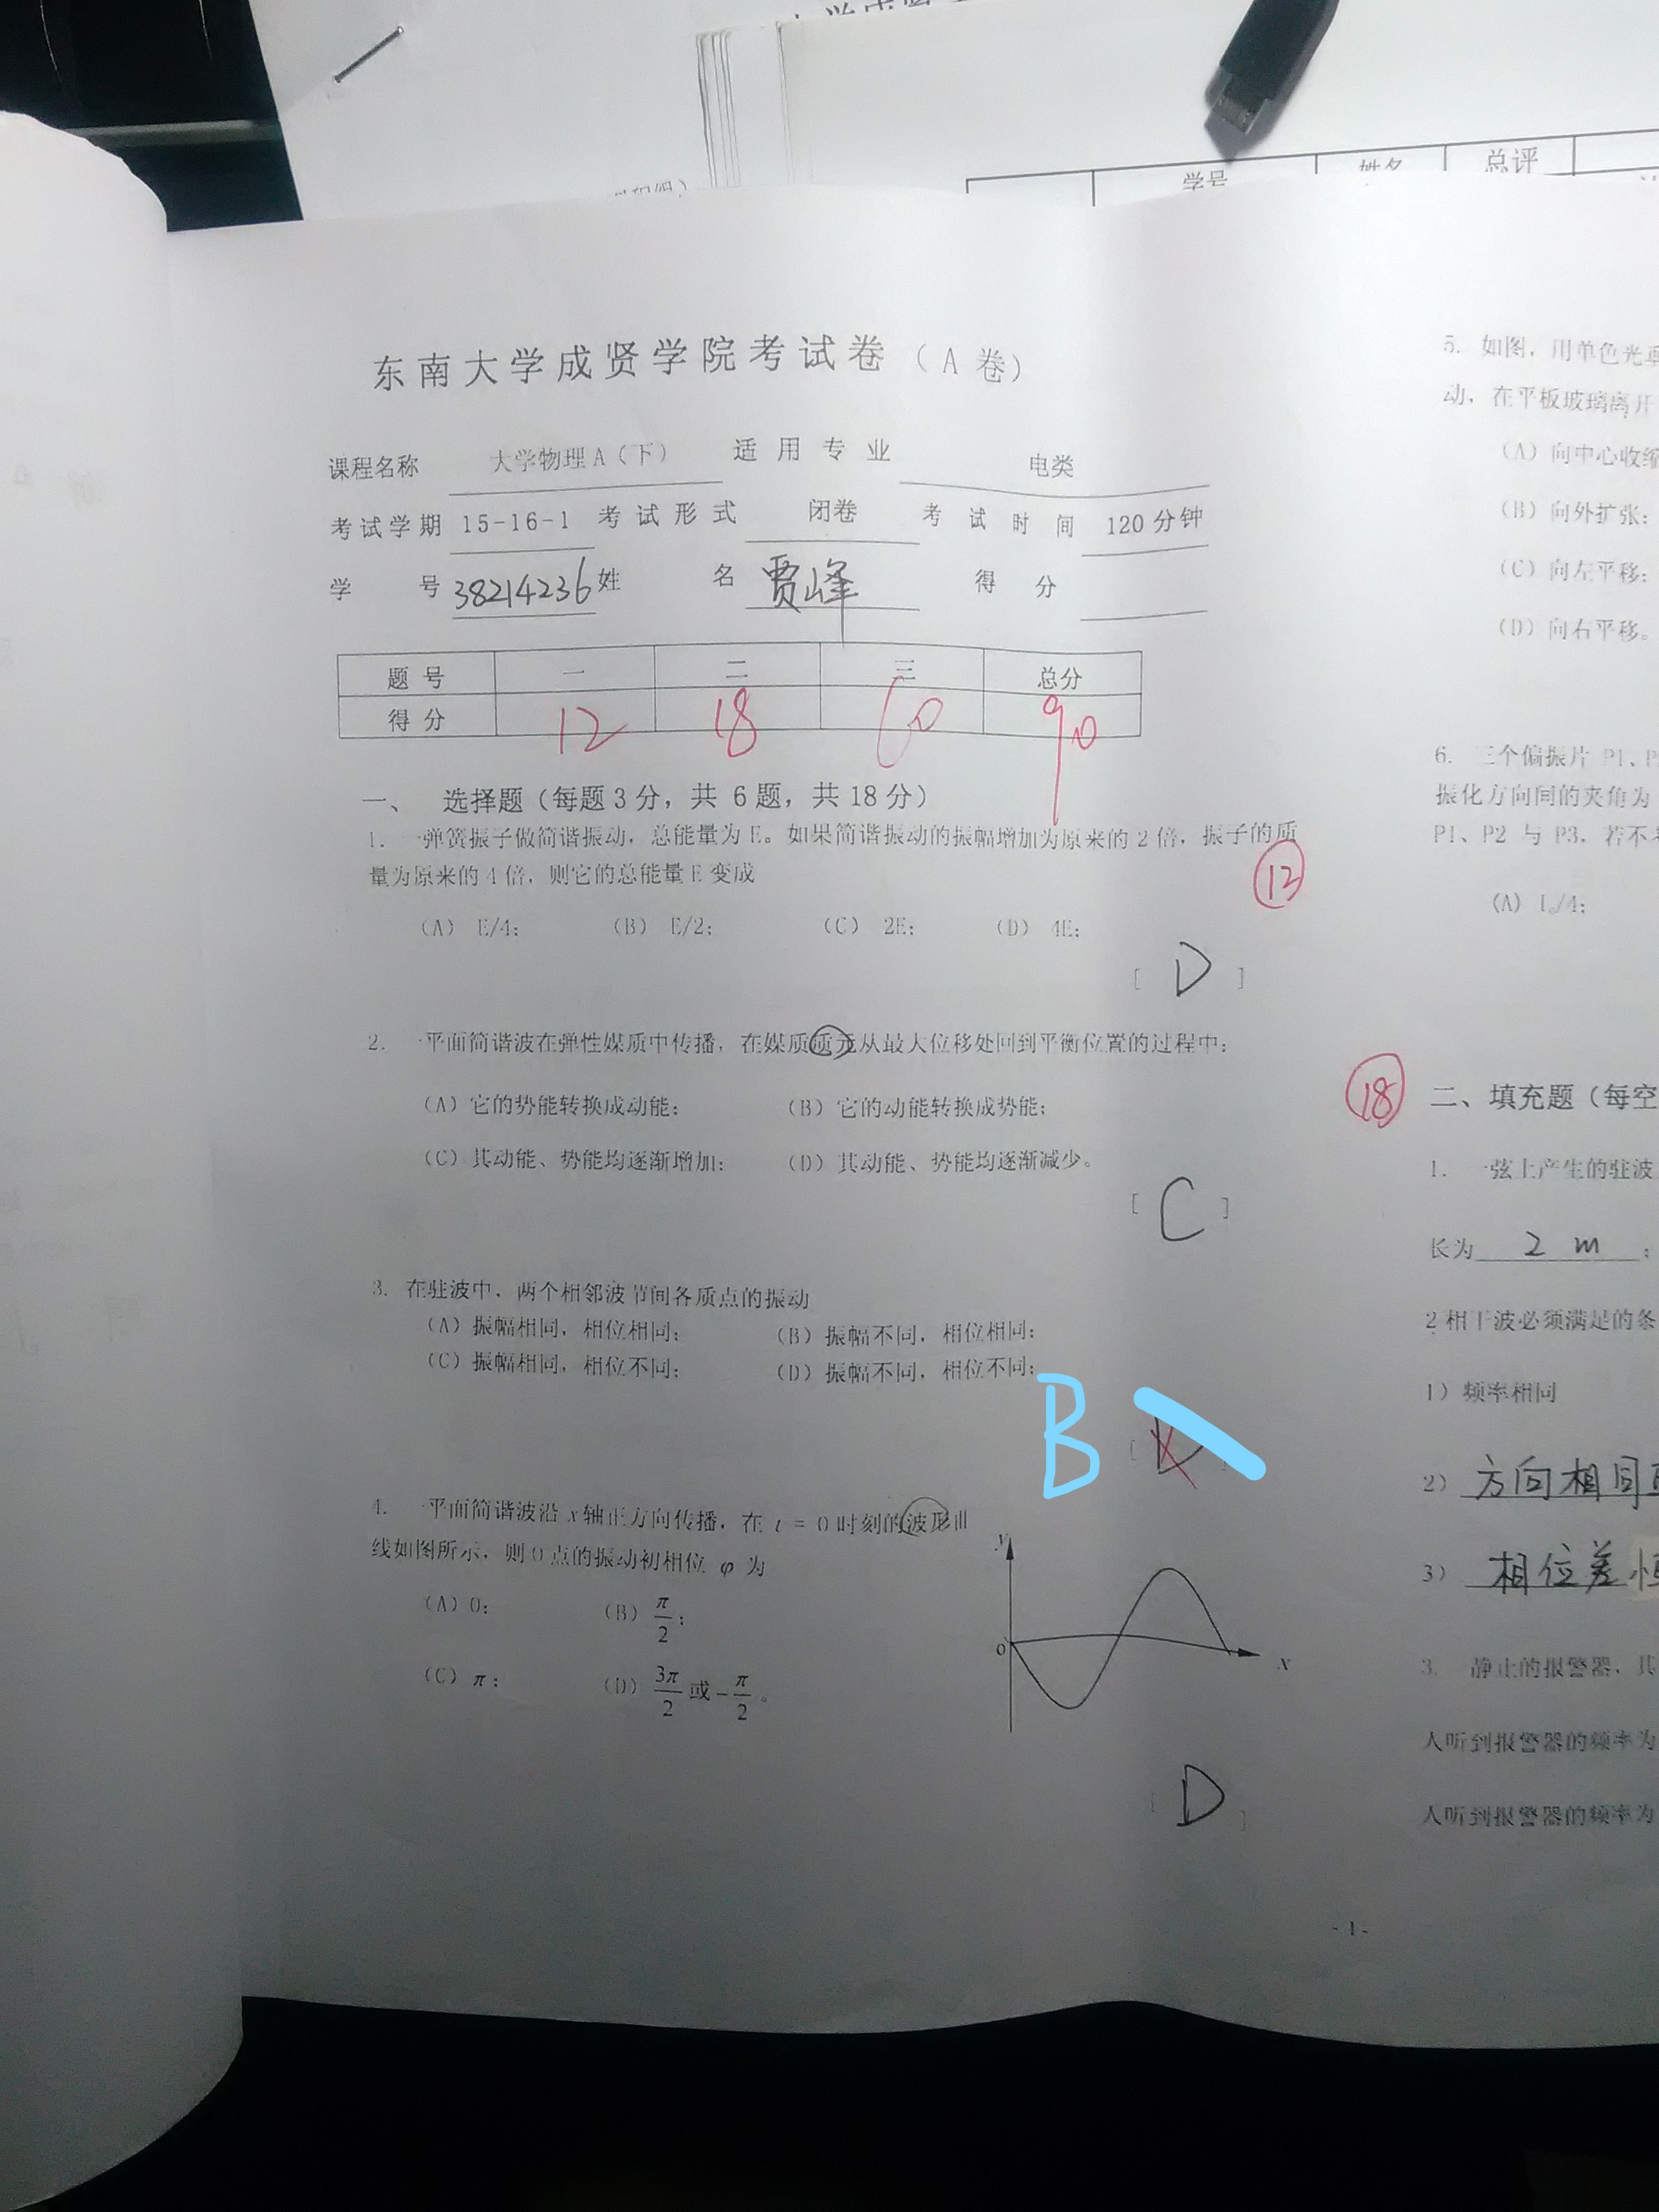 学号 姓名 总评
东南大学成贤学院考试卷（A 卷）
课程名称 大学物理A（下） 适用专业 电类
考试学期 15-16-1 考试形式 闭卷 考试时间 120分钟
学号 38214236 姓名 贾峰 得分
题号 一 二 三 总分
得分 12 18 60 90
一、 选择题（每题3分，共 6题，共18分）
1. 一弹簧振子做简谐振动，总能量为E。如果简谐振动的振幅增加为原来的2倍，振子的质
量为原来的4倍，则它的总能量E变成
12
（A） E/4; （B） E/2; （C） 2E; （D） 4E;
[ D ]
2. 一平面简谐波在弹性媒质中传播，在媒质质元从最大位移处回到平衡位置的过程中：
（A）它的势能转换成动能； （B）它的动能转换成势能；
（C）其动能、势能均逐渐增加； （D）其动能、势能均逐渐减少。
[ C ]
3. 在驻波中，两个相邻波节间各质点的振动
（A）振幅相同，相位相同； （B）振幅不同，相位相同；
（C）振幅相同，相位不同； （D）振幅不同，相位不同；
B [ D ]
4. 一平面简谐波沿 x 轴正方向传播，在 t = 0 时刻的波形曲
线如图所示，则0点的振动初相位 φ 为
（A）0; （B）π/2;
（C）π; （D）3π/2 或 -π/2。
y
0
x
[ D ]
- 1 -
5. 如图，用单色光垂
动，在平板玻璃离开
（A）向中心收缩
（B）向外扩张；
（C）向左平移；
（D）向右平移。
6. 三个偏振片 P1、P
振化方向间的夹角为
P1、P2 与 P3，若不
（A）I₀/4;
18
二、填充题（每空
1. 一弦上产生的驻波
长为 2 m ；
2 相干波必须满足的条
1）频率相同
2）方向相同
3）相位差恒
3. 静止的报警器，其
人听到报警器的频率为
人听到报警器的频率为